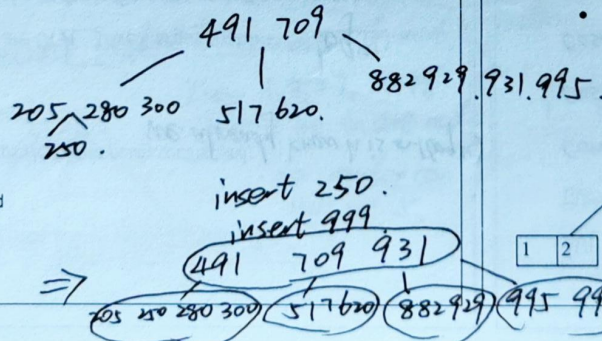 491 709
205 280 300 517 620. 882 929.931.995.
250.
insert 250.
insert 999
491 709 931
1 2
205 250 280 300 517 620 882 929 995 99